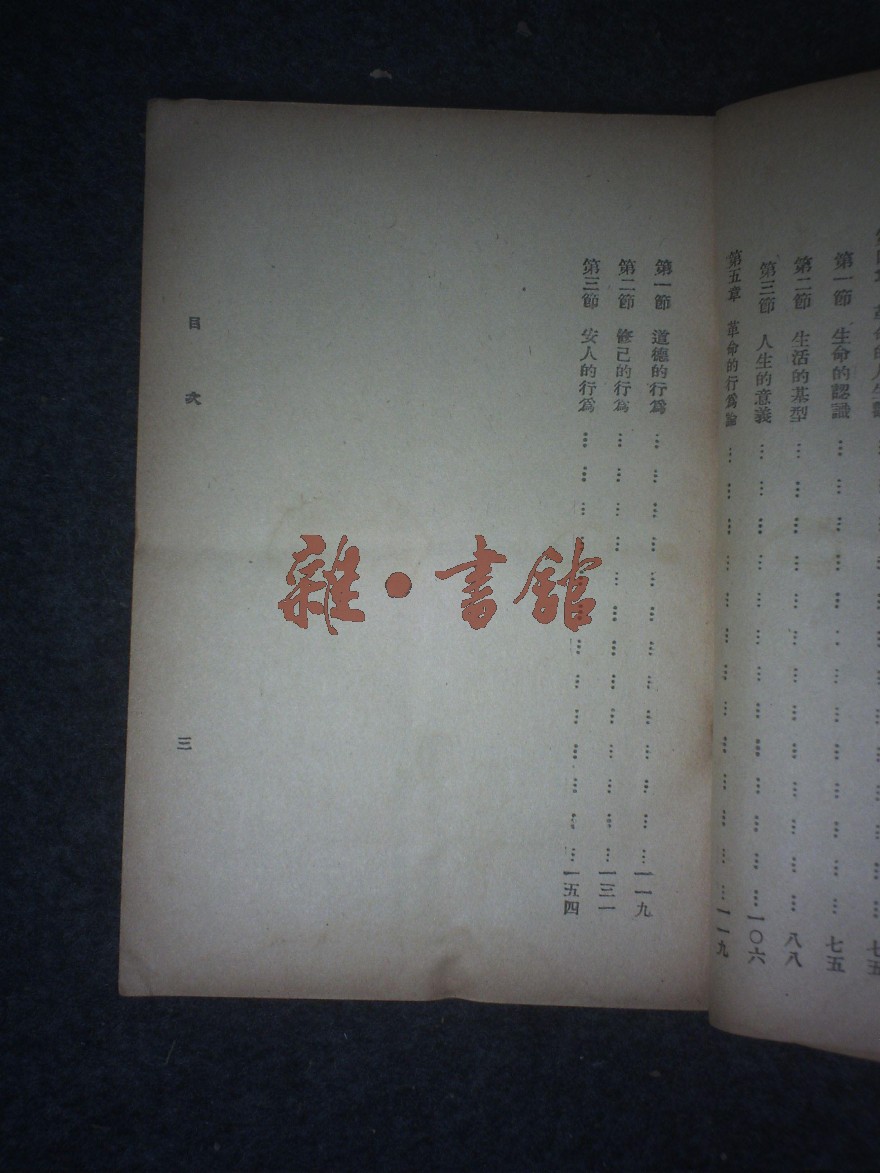 第一節 生命的認識 七五
第二節 生活的基型 八八
第三節 人生的意義 一〇六
第五章 革命的行爲論 一一九
第一節 道德的行爲 一一九
第二節 修己的行爲 一三一
第三節 安人的行爲 一五四
目次
三
雜·書館